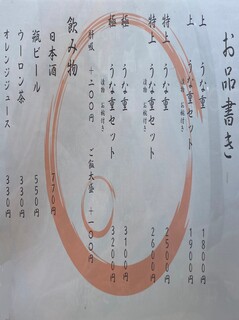 お品書き
上 うな重 1800円
上 うな重セット 1900円
漬物 お吸付き
特上 うな重 2500円
特上 うな重セット 2600円
漬物 お吸付き
極 うな重 3100円
極 うな重セット 3200円
漬物 お吸付き
肝吸 +200円 ご飯大盛 +100円
飲み物
日本酒 770円
瓶ビール 550円
ウーロン茶 330円
オレンジジュース 330円